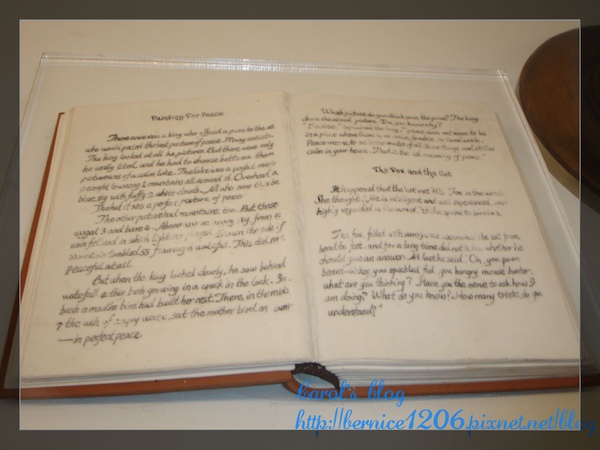 Painting For Peace
There once was a king who offered a prize to the
who would paint the best picture of peace. Many artists
The king looked at all the pictures. But there were only
he really liked, and he had to choose between them
picture was of a calm lake. The lake was a perfect
peaceful towering mountains all around it. Overhead
blue sky with fluffy white clouds. All who
that it was a perfect picture of peace.
The other picture had mountains too. But these
rugged and bare. Above was an angry sky, from
rain fell and in which lightning played. Down the side of
tumbled a foaming waterfall. This did not
peaceful at all.
But when the king looked closely, he saw behind
waterfall a tiny bush growing in a crack in the rock. In
bush a mother bird had built her nest. There, in the midst
the rush of angry water, sat the mother bird on
— in perfect peace.
Which picture do you think won the prize? The king
chose the second picture. Do you know why?
"Because," explained the king, "peace does not mean to be
in a place where there is no noise, trouble, or hard work.
Peace means to be in the midst of all those things and still be
calm in your heart. That is the real meaning of peace."
The Fox and the Cat
It happened that the cat met Mr. Fox in the woods
She thought, "He is
highly regarded in the world.
The fox, filled with arrogance, the cat from
head to feet, and for a long time did not know whether he
should give an answer. At last he said, "Oh, you poor
beard-licker, you speckled fool, you hungry mouse hunter,
what are you thinking? Have you the nerve to ask how I
am doing? What do you know? How many tricks do you
understand?"
karol's blog
http://bernice1206.pixnet.net/blog